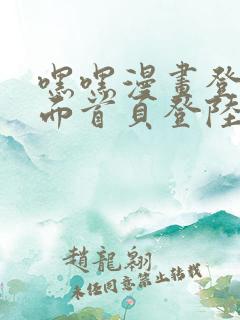 嘿嘿漫畫登
面首頁登陸
趙龍翱
未经同意禁止转载